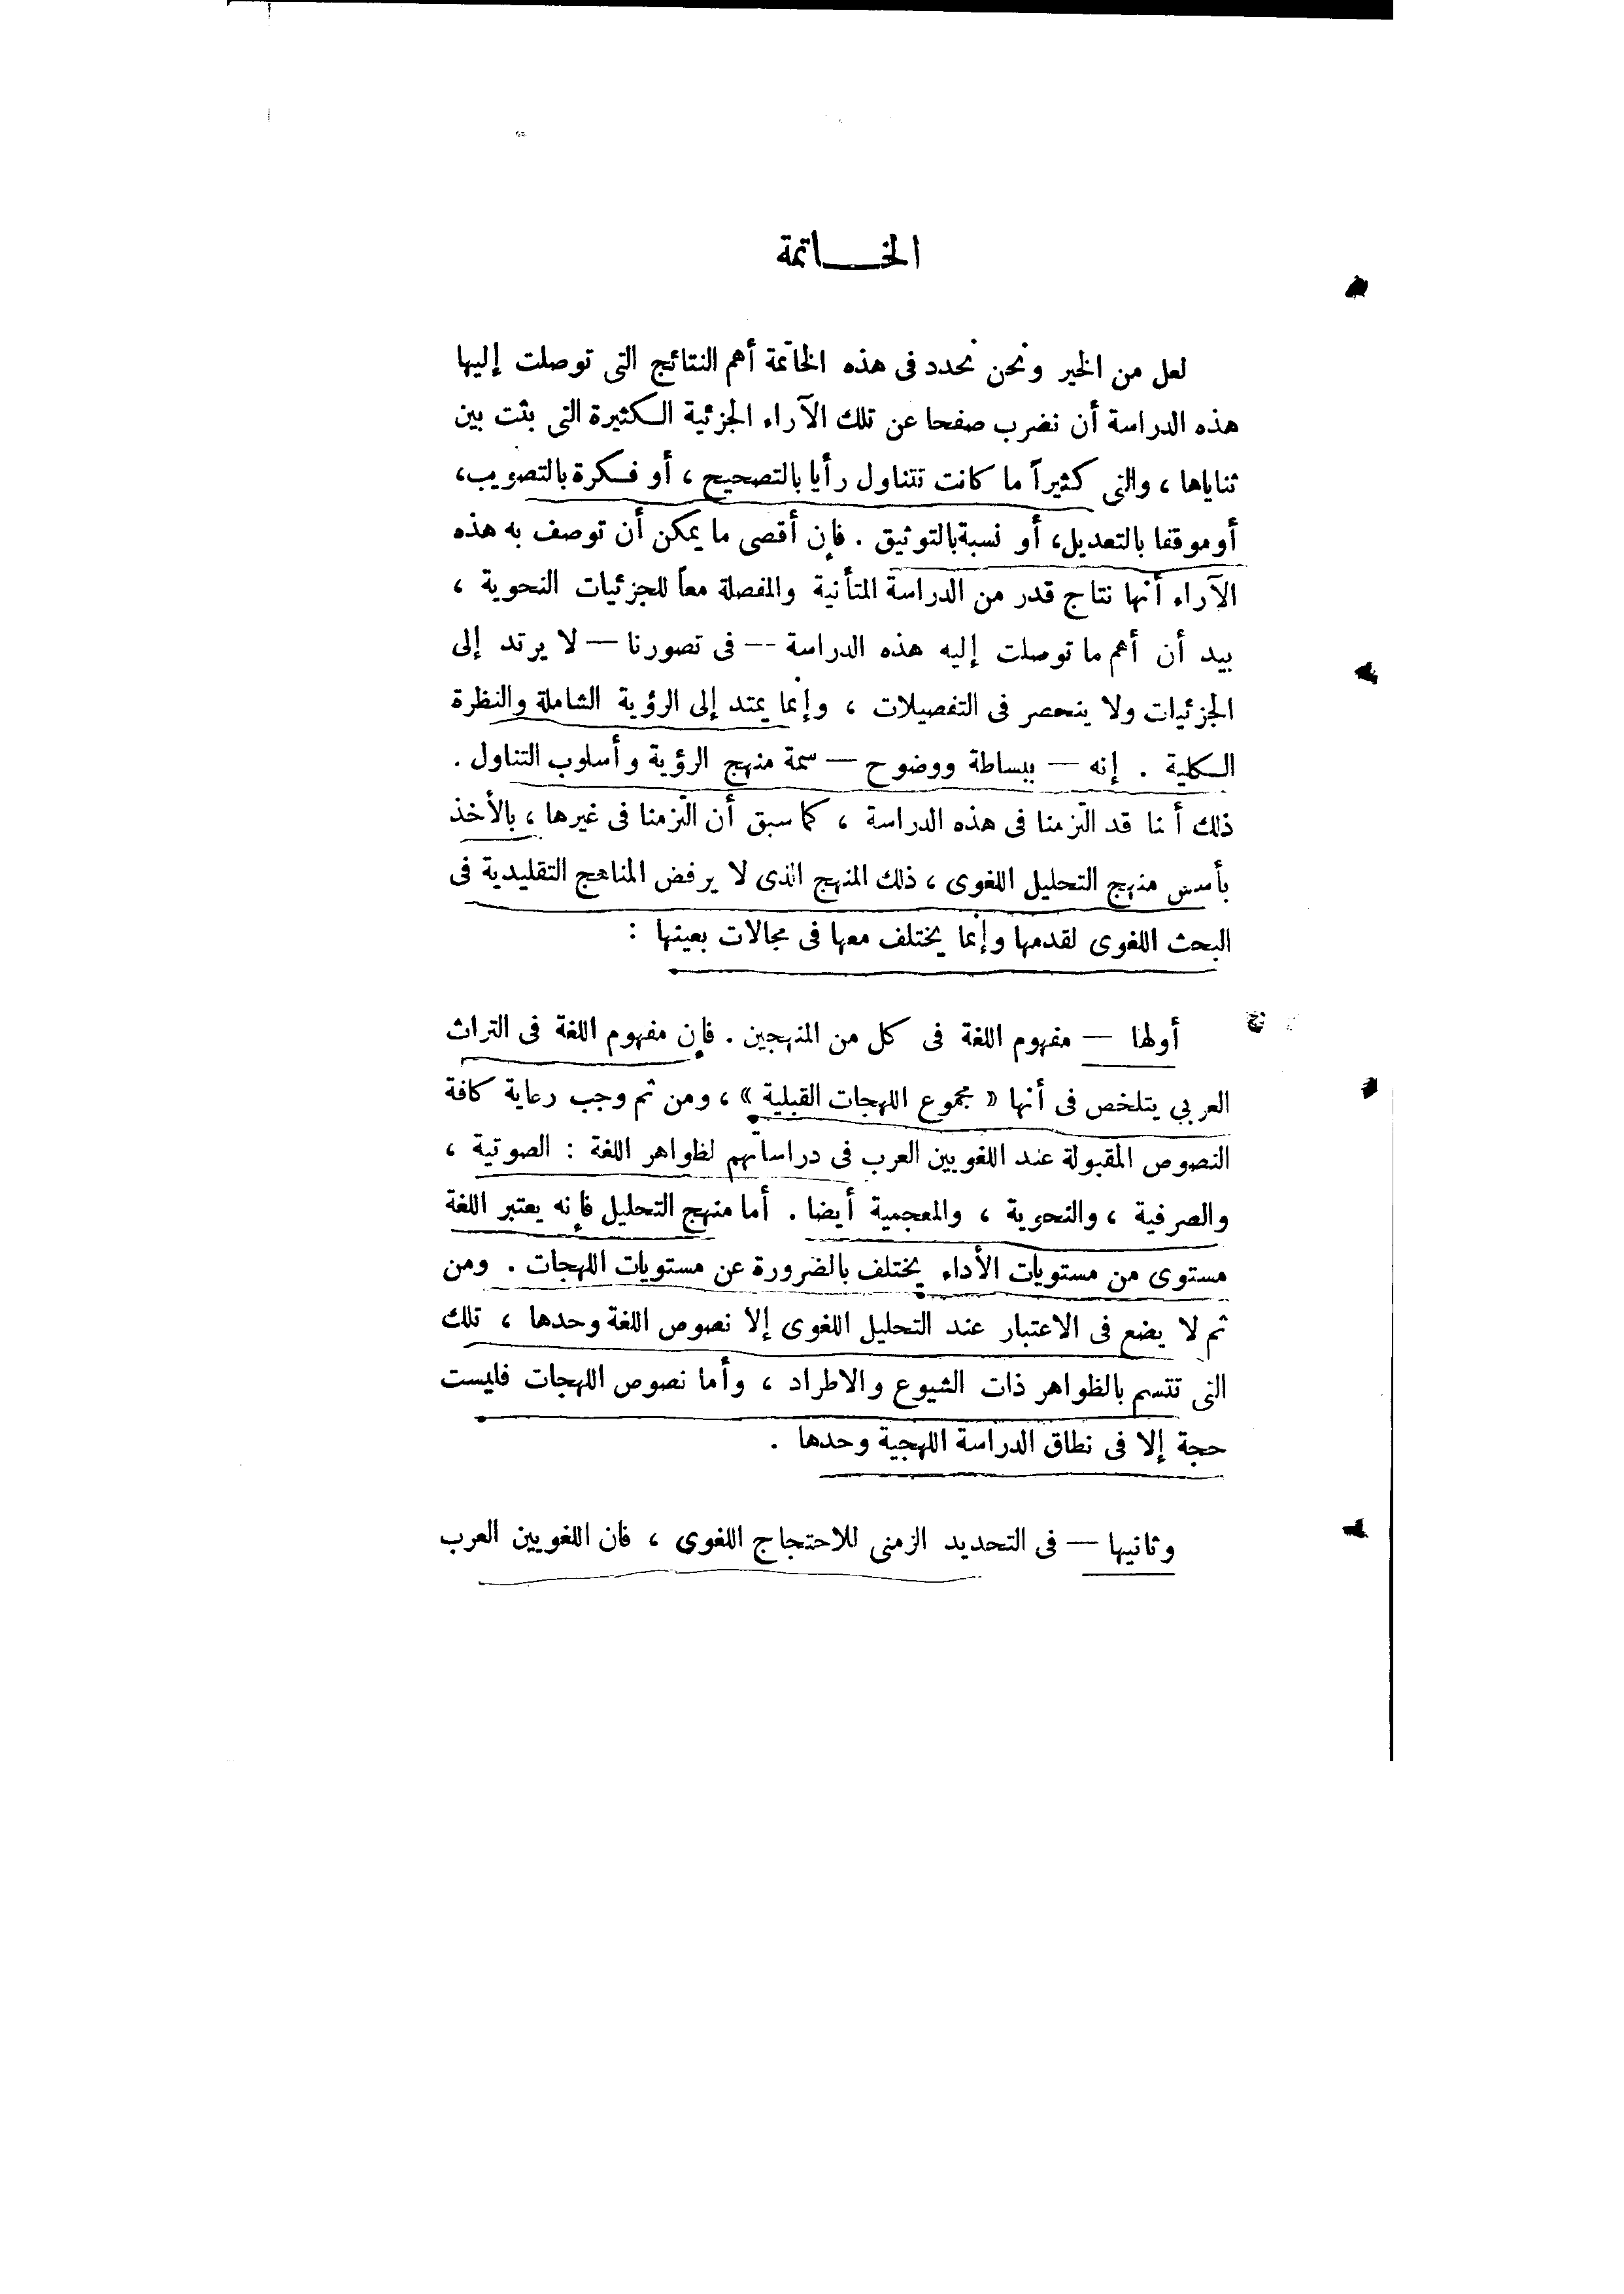 الخــاتمة
لعل من الخير ونحن نحدد فى هذه الخاتمة أهم النتائج التى توصلت إليها
هذه الدراسة أن نضرب صفحا عن تلك الآراء الجزئية الكثيرة التى بثت بين
ثناياها ، والتى كثيراً ما كانت تتناول رأيا بالتصحيح ، أو فكرة بالتصويب،
أوموقفا بالتعديل، أو نسبة بالتوثيق . فإن أقصى ما يمكن أن توصف به هذه
الآراء أنها نتاج قدر من الدراسة المتأنية والمفصلة معاً للجزئيات النحوية ،
بيد أن أهم ما توصلت إليه هذه الدراسة — فى تصورنا — لا يرتد إلى
الجزئيات ولا ينحصر فى التفصيلات ، وإنما يمتد إلى الرؤية الشاملة والنظرة
الكلية . إنه — ببساطة ووضوح — سمة منهج الرؤية وأسلوب التناول .
ذلك أننا قد التزمنا فى هذه الدراسة ، كما سبق أن التزمنا فى غيرها ، بالأخذ
بأسس منهج التحليل اللغوى ، ذلك المنهج الذى لا يرفض المناهج التقليدية فى
البحث اللغوى لقدمها وإنما يختلف معها فى مجالات بعينها :
أولها — مفهوم اللغة فى كل من المنهجين . فإن مفهوم اللغة فى التراث
العربي يتلخص فى أنها « مجموع اللهجات القبلية » ، ومن ثم وجب رعاية كافة
النصوص المقبولة عند اللغويين العرب فى دراساتهم لظواهر اللغة : الصوتية ،
والصرفية ، والنحوية ، والمعجمية أيضا . أما منهج التحليل فإنه يعتبر اللغة
مستوى من مستويات الأداء يختلف بالضرورة عن مستويات اللهجات . ومن
ثم لا يضع فى الاعتبار عند التحليل اللغوى إلا نصوص اللغة وحدها ، تلك
التى تتسم بالظواهر ذات الشيوع والاطراد ، وأما نصوص اللهجات فليست
حجة إلا فى نطاق الدراسة اللهجية وحدها .
وثانيها — فى التحديد الزمنى للاحتجاج اللغوى ، فان اللغويين العرب